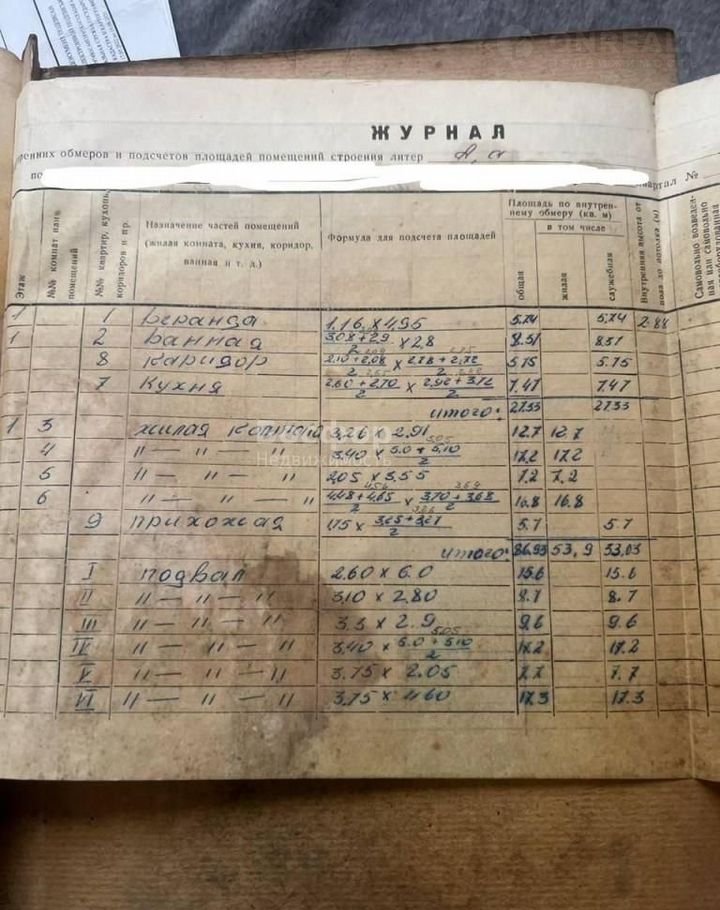 ЖУРНАЛ
енних обмеров и подсчетов площадей помещений строения литер А, а
по квартал №
Этаж
№№ комнат или помещений
№№ квартир, кухонь, коридоров и пр.
Назначение частей помещений
(жилая комната, кухня, коридор,
ванная и т. д.)
Формула для подсчета площадей
Площадь по внутрен-
нему обмеру (кв. м)
общая
в том числе
жилая
служебная
Внутренняя высота от пола до потолка (м)
1 1 Веранда 1,16 x 4,95 5.74 5.74 2.88
1 2 Ванная 3,08+2,9 / 2 x 2,8 8.31 8.31
8 Каридор 2,10+2,08 / 2 x 2,78+2,72 / 2 5.75 5.75
7 Кухня 2,60+2,70 / 2 x 2,92+3,12 / 2 7.47 7.47
итого: 27.33 27.33
1 3 жилая комната 3,26 x 2,91 12.7 12.7
4 〃 — 〃 — 〃 3,40 x 5.0+5,10 / 2 17.2 17.2
Недвижимость
5 〃 — 〃 — 〃 2.05 x 3,55 7.2 7.2
6 〃 — 〃 — 〃 4,48+4,65 / 2 x 3,70+3,68 / 2 16.8 16.8
9 прихожая 1,75 x 3,25+3,27 / 2 5.7 5.7
итого: 86.93 53,9 53,03
I подвал 2.60 x 6.0 15.6 15.6
II 〃 — 〃 — 〃 3,10 x 2,80 8.7 8.7
III 〃 — 〃 — 〃 3.3 x 2.9 9.6 9.6
IV 〃 — 〃 — 〃 3.40 x 5.0+5,10 / 2 17.2 17.2
V 〃 — 〃 — 〃 3.75 x 2.05 7.7 7.7
VI 〃 — 〃 — 〃 3,75 x 4.60 17.3 17.3